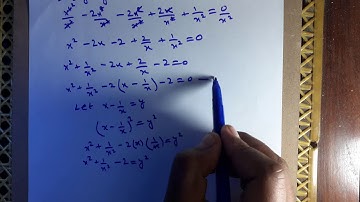 x⁴/x² - 2x³/x² - 2x²/x² + 2x/x² + 1/x² = 0/x²
x² - 2x - 2 + 2/x + 1/x² = 0
x² + 1/x² - 2x + 2/x - 2 = 0
x² + 1/x² - 2(x - 1/x) - 2 = 0 —
Let x - 1/x = y
(x - 1/x)² = y²
x² + 1/x² - 2(x)(1/x) = y²
x² + 1/x² - 2 = y²